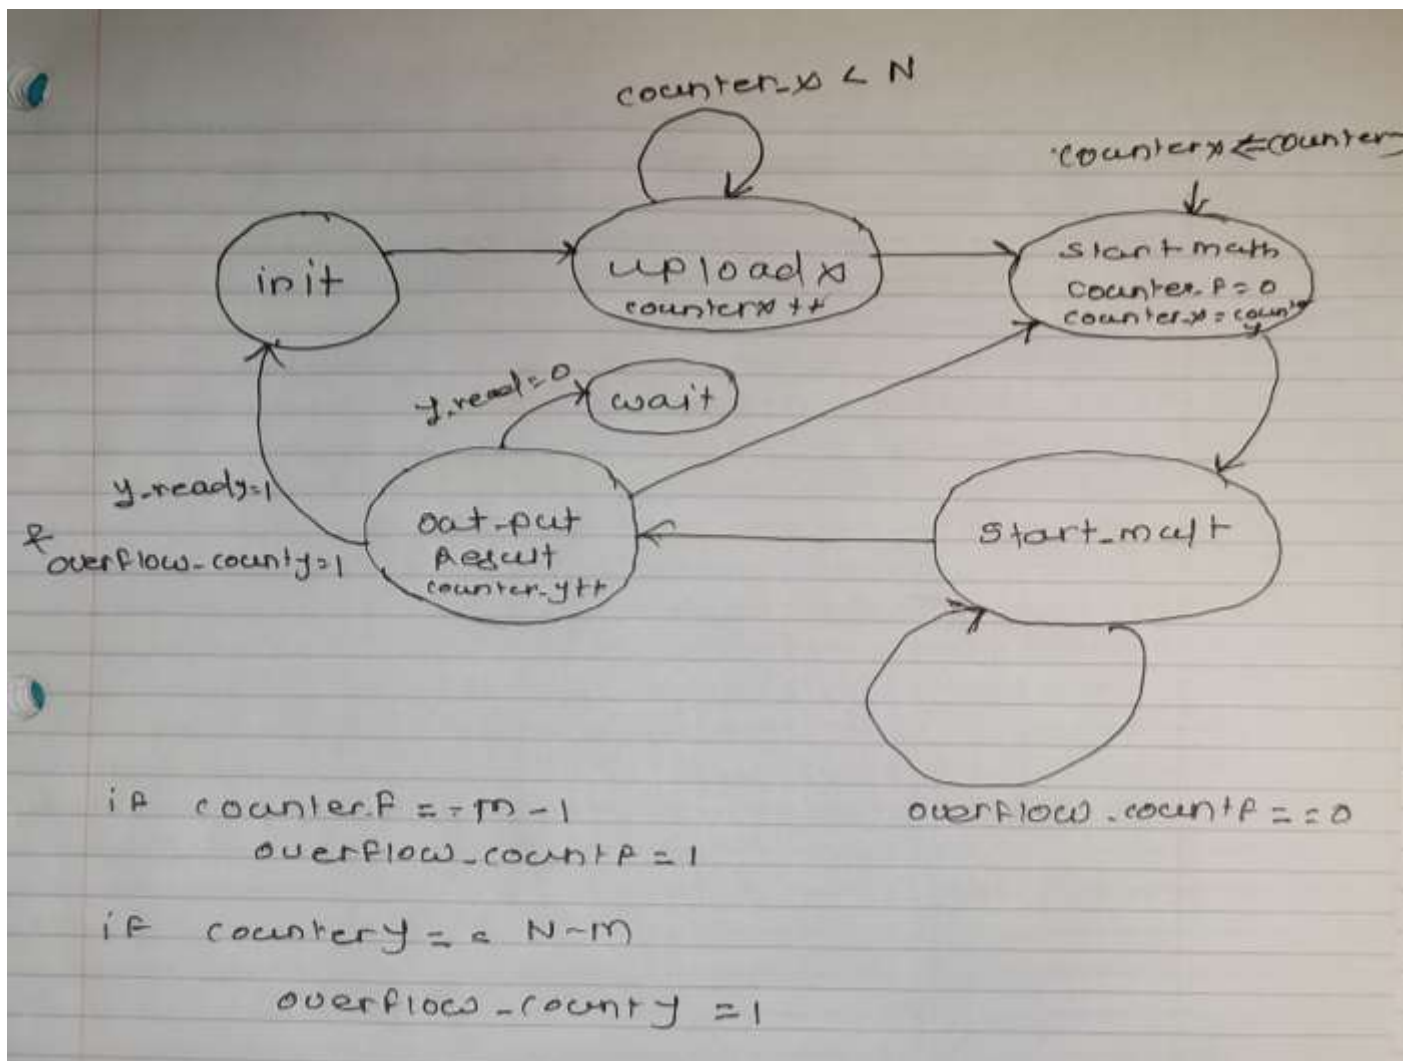 counter_x < N
counterx <= countery
init
upload x
counterx ++
start math
counter_f = 0
counter_x = count
y
y_read=0
wait
y_ready=1
&
overflow_county=1
out_put
Result
counter_y++
start_mult
if counter_f == m-1
overflow_countf == 0
overflow_countf = 1
if countery == N-m
overflow_county = 1